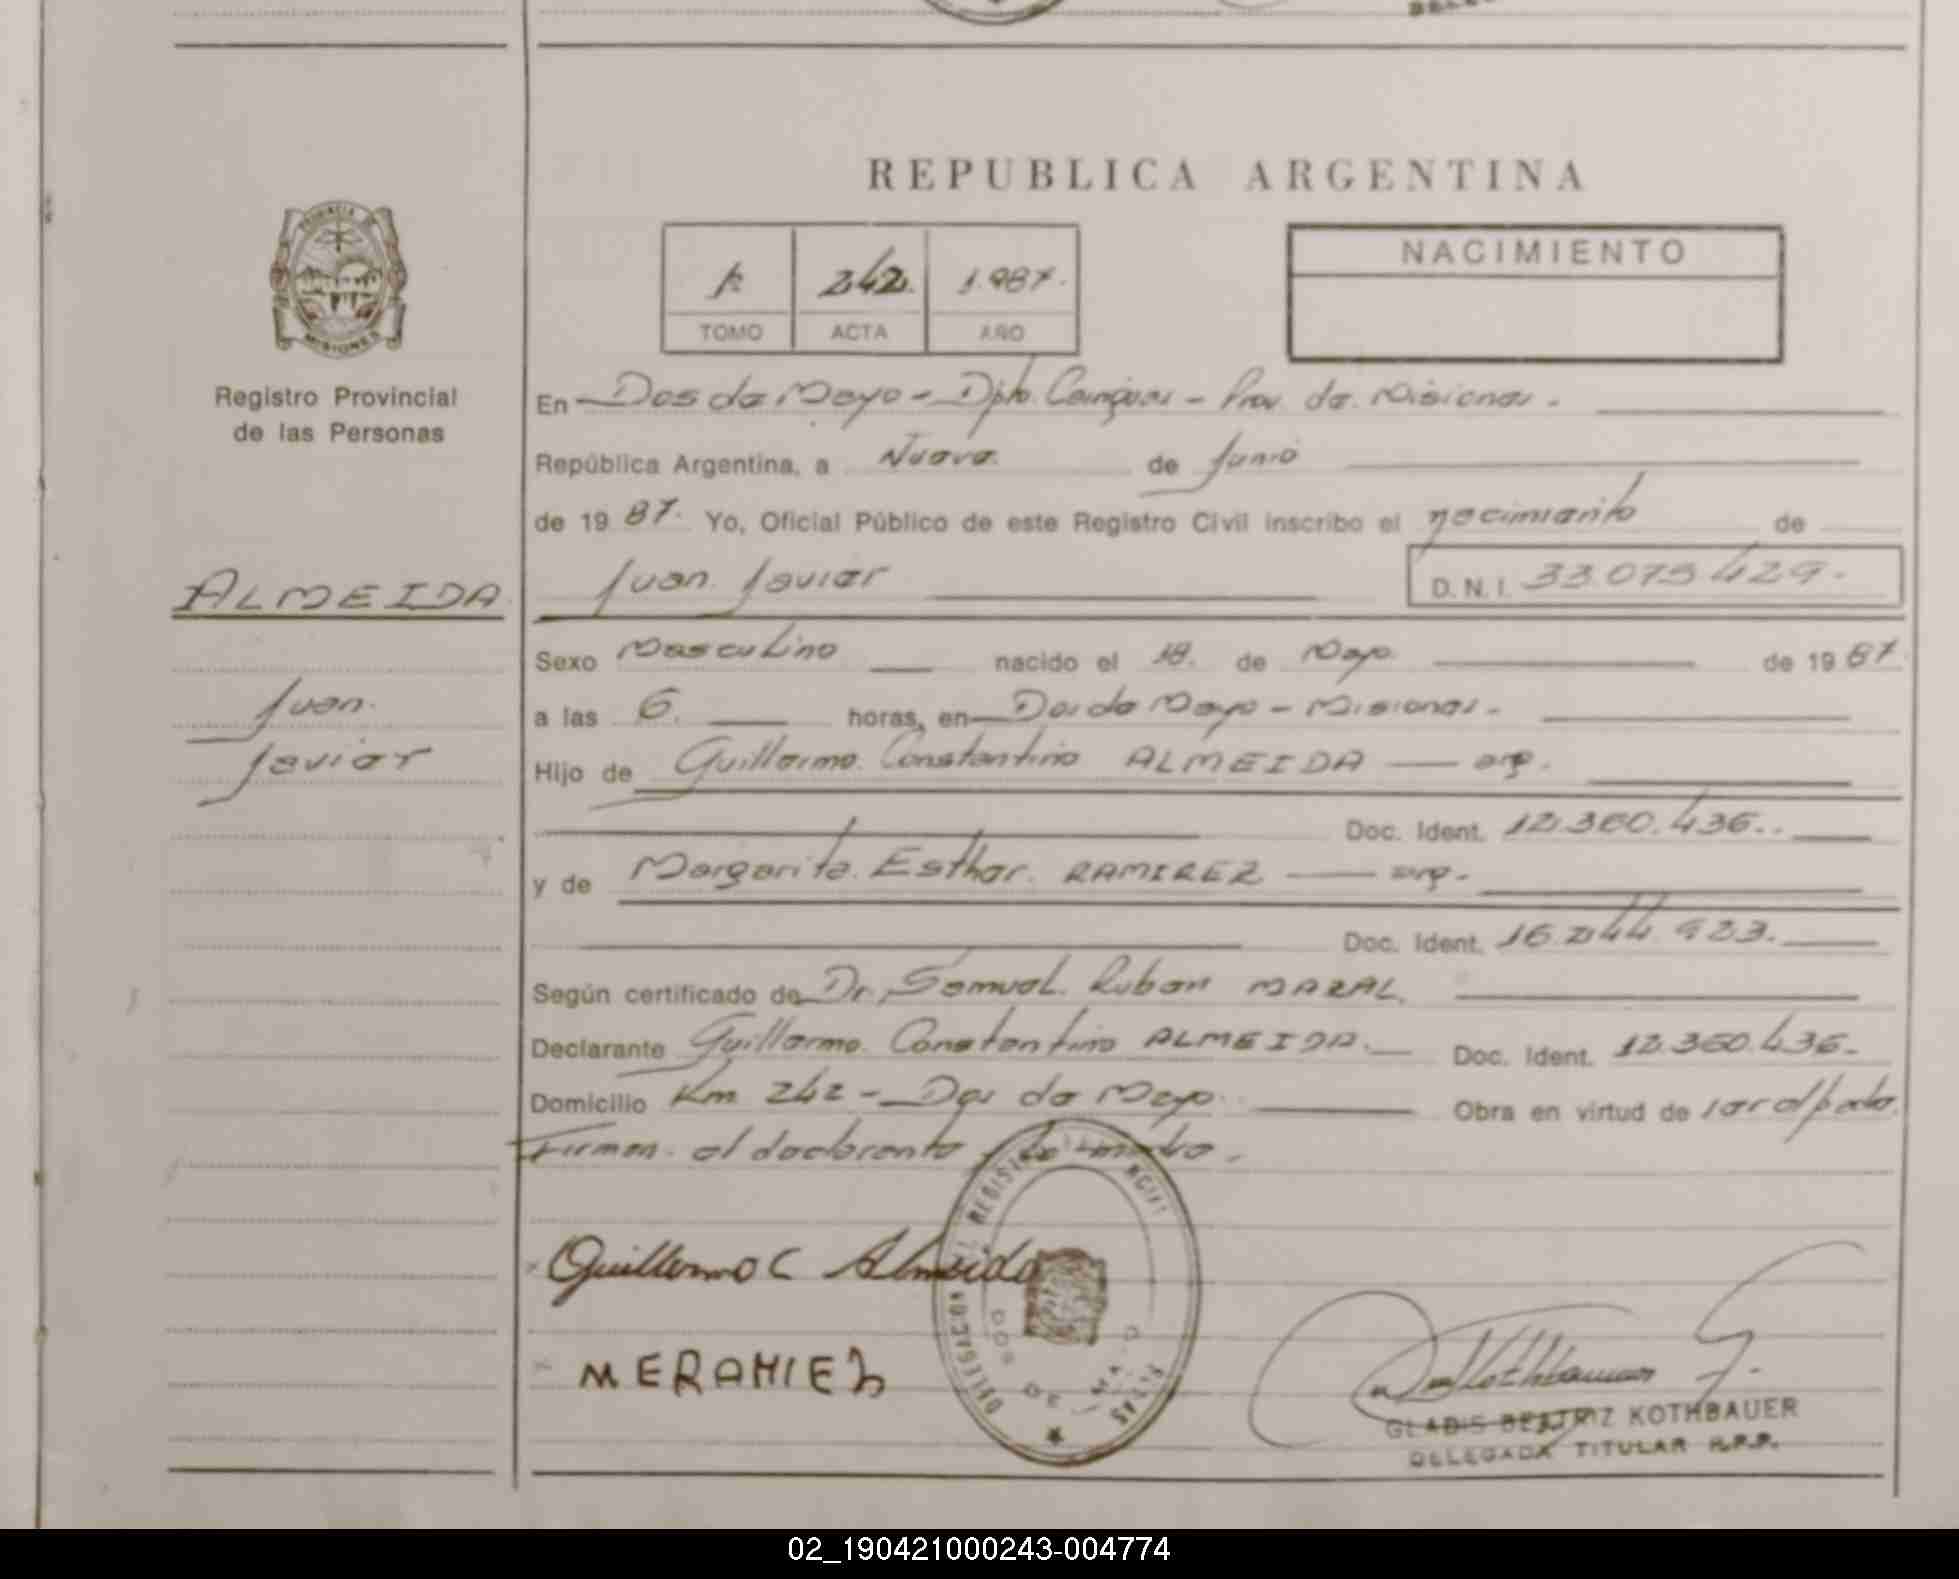 REPUBLICA ARGENTINA
PROVINCIA DE
MISIONES
Registro Provincial
de las Personas
242. 1.987.
TOMO ACTA AÑO
NACIMIENTO
En Dos de Mayo - Dpto. Cainguas - Prov. de Misiones.
República Argentina, a Nueve de Junio
de 19 87. Yo, Oficial Público de este Registro Civil inscribo el nacimiento de
ALMEIDA
Juan
Javier
Juan Javier D.N.I. 33.075.429.
Sexo Masculino nacido el 18. de Mayo de 19 87
a las 6. horas, en Dos de Mayo - Misiones.
Hijo de Guillermo Constantino ALMEIDA — arg.
Doc. Ident. 12.360.436.
y de Margarita Esther RAMIREZ — arg.
Doc. Ident. 16.244.923.
Según certificado de Dr. Samuel Ruben MAZAL
Declarante Guillermo Constantino ALMEIDA. Doc. Ident. 12.360.436.
Domicilio Km 242 - Dos de Mayo. Obra en virtud de ser el padre.
Firman el declarante y la madre.
Guillermo C Almeida
MERAMIEZ
DELEGACION REGISTRO
DOS DE MAYO
GLADIS BEATRIZ KOTHBAUER
DELEGADA TITULAR R.P.P.
02_190421000243-004774